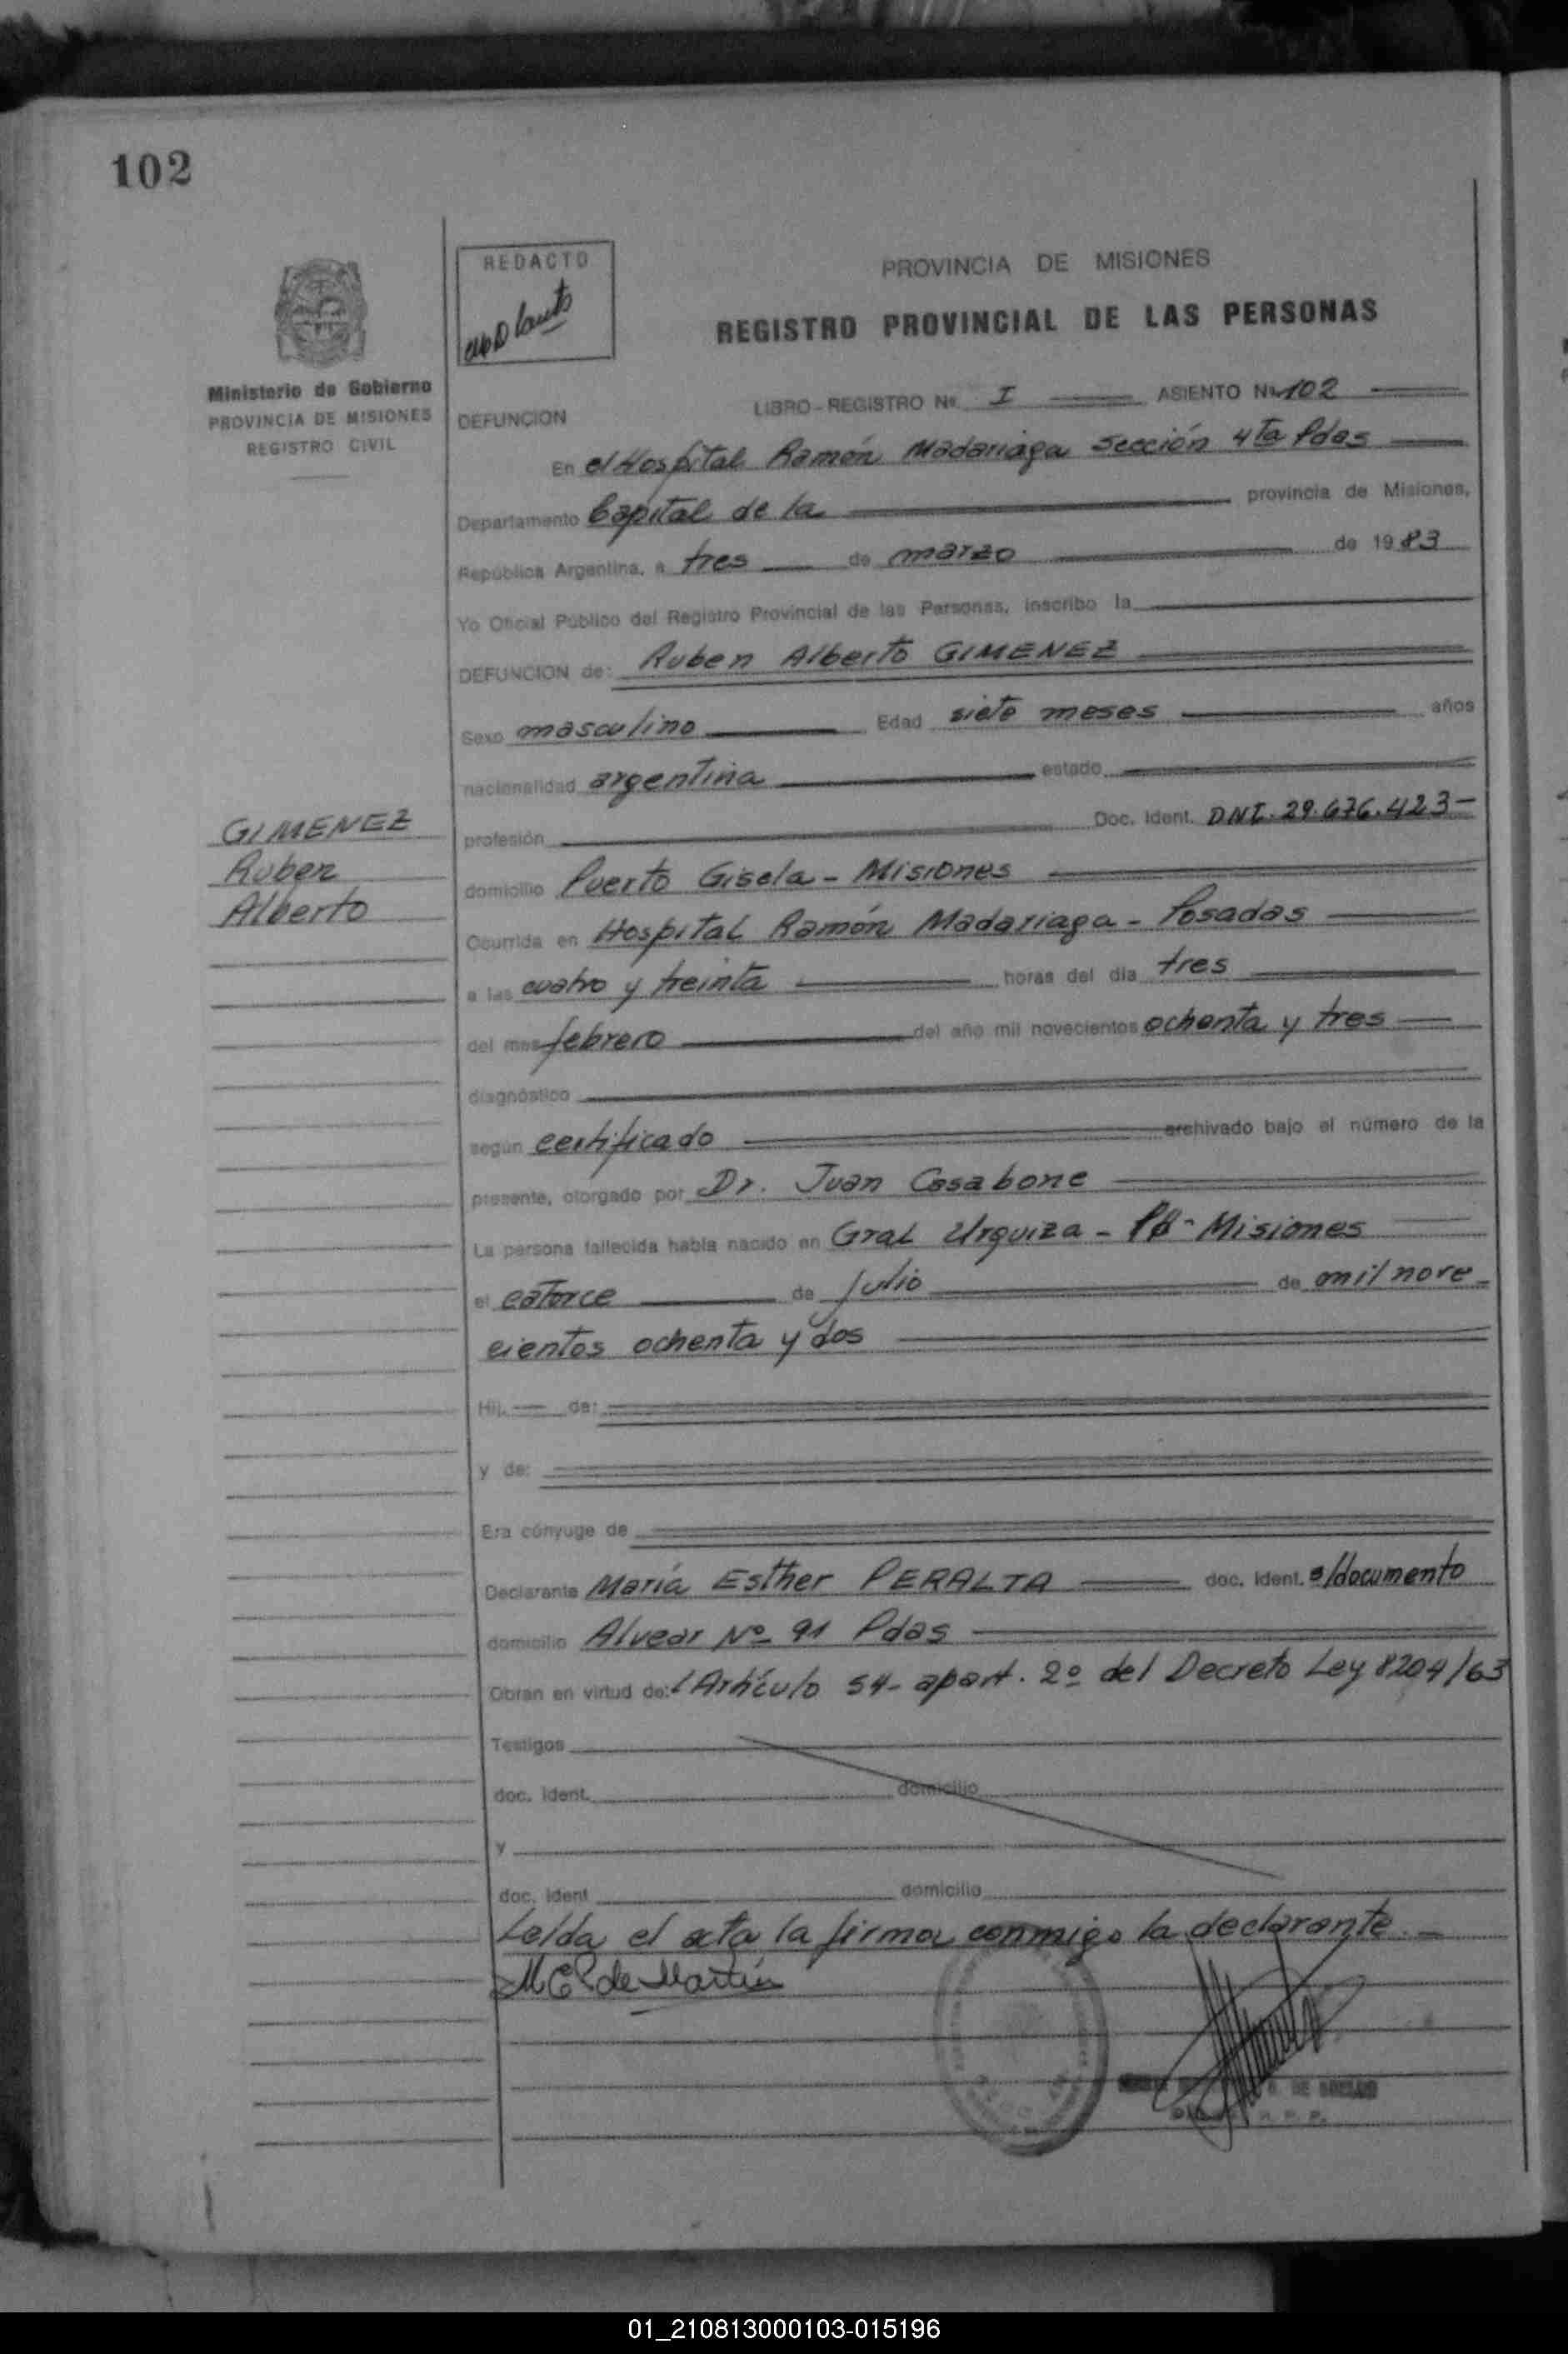 102
REDACTO
PROVINCIA DE MISIONES
REGISTRO PROVINCIAL DE LAS PERSONAS
Ministerio de Gobierno
PROVINCIA DE MISIONES
REGISTRO CIVIL
DEFUNCION
LIBRO-REGISTRO Nº I ASIENTO Nº 102
En el Hospital Ramón Madariaga Sección 4ta Pdas
Departamento Capital de la provincia de Misiones,
República Argentina, a tres de marzo de 1983
Yo Oficial Público del Registro Provincial de las Personas, inscribo la
DEFUNCION de: Ruben Alberto GIMENEZ
Sexo masculino Edad siete meses años
nacionalidad argentina estado
GIMENEZ
Ruben
Alberto
profesión Doc. Ident. DNI. 29.676.423-
domicilio Puerto Gisela - Misiones
Ocurrida en Hospital Ramón Madariaga - Posadas
a las cuatro y treinta horas del día tres
del mes febrero del año mil novecientos ochenta y tres
diagnóstico
según certificado archivado bajo el número de la
presente, otorgado por Dr. Juan Casabone
La persona fallecida había nacido en Gral Urquiza - Misiones
el catorce de julio de mil nove
cientos ochenta y dos
Hij. de:
y de:
Era cónyuge de
Declarante María Esther PERALTA doc. ident. s/documento
domicilio Alvear Nº 91 Pdas
Obran en virtud de: l Artículo 54- apart. 2º del Decreto Ley 8204/63
Testigos
doc. ident. domicilio
y
doc. ident domicilio
Leída el acta la firma conmigo la declarante.
M E P de Martín
01_210813000103-015196